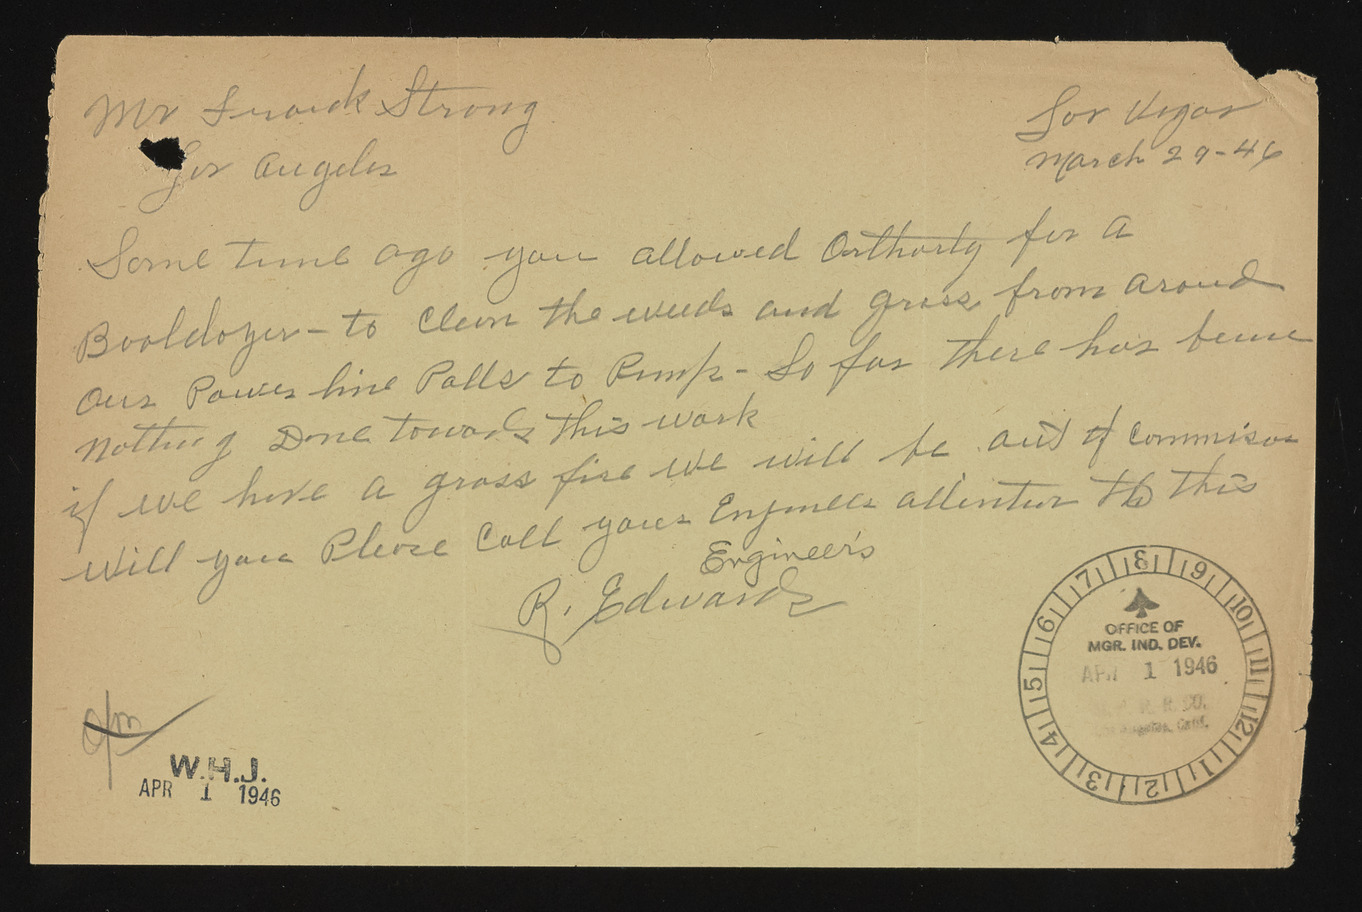 Mr Frank Strong
Los Angeles
Las Vegas
March 29-46
Some time ago you allowed Orthorty for a
Booldozer - to clean the weeds and grass from around
our Power line Polls to Pump - So far there has beene
nothing Done towards this work
if we have a grass fire we will be out of commison
will you Please Call your Engineers attention to this
Engineer's
R. Edwards
W.H.J.
APR 1 1946
OFFICE OF
MGR. IND. DEV.
APR 1 1946
R. R. CO.
Los Angeles, Calif.
1 2 3 4 5 6 7 8 9 10 11 12